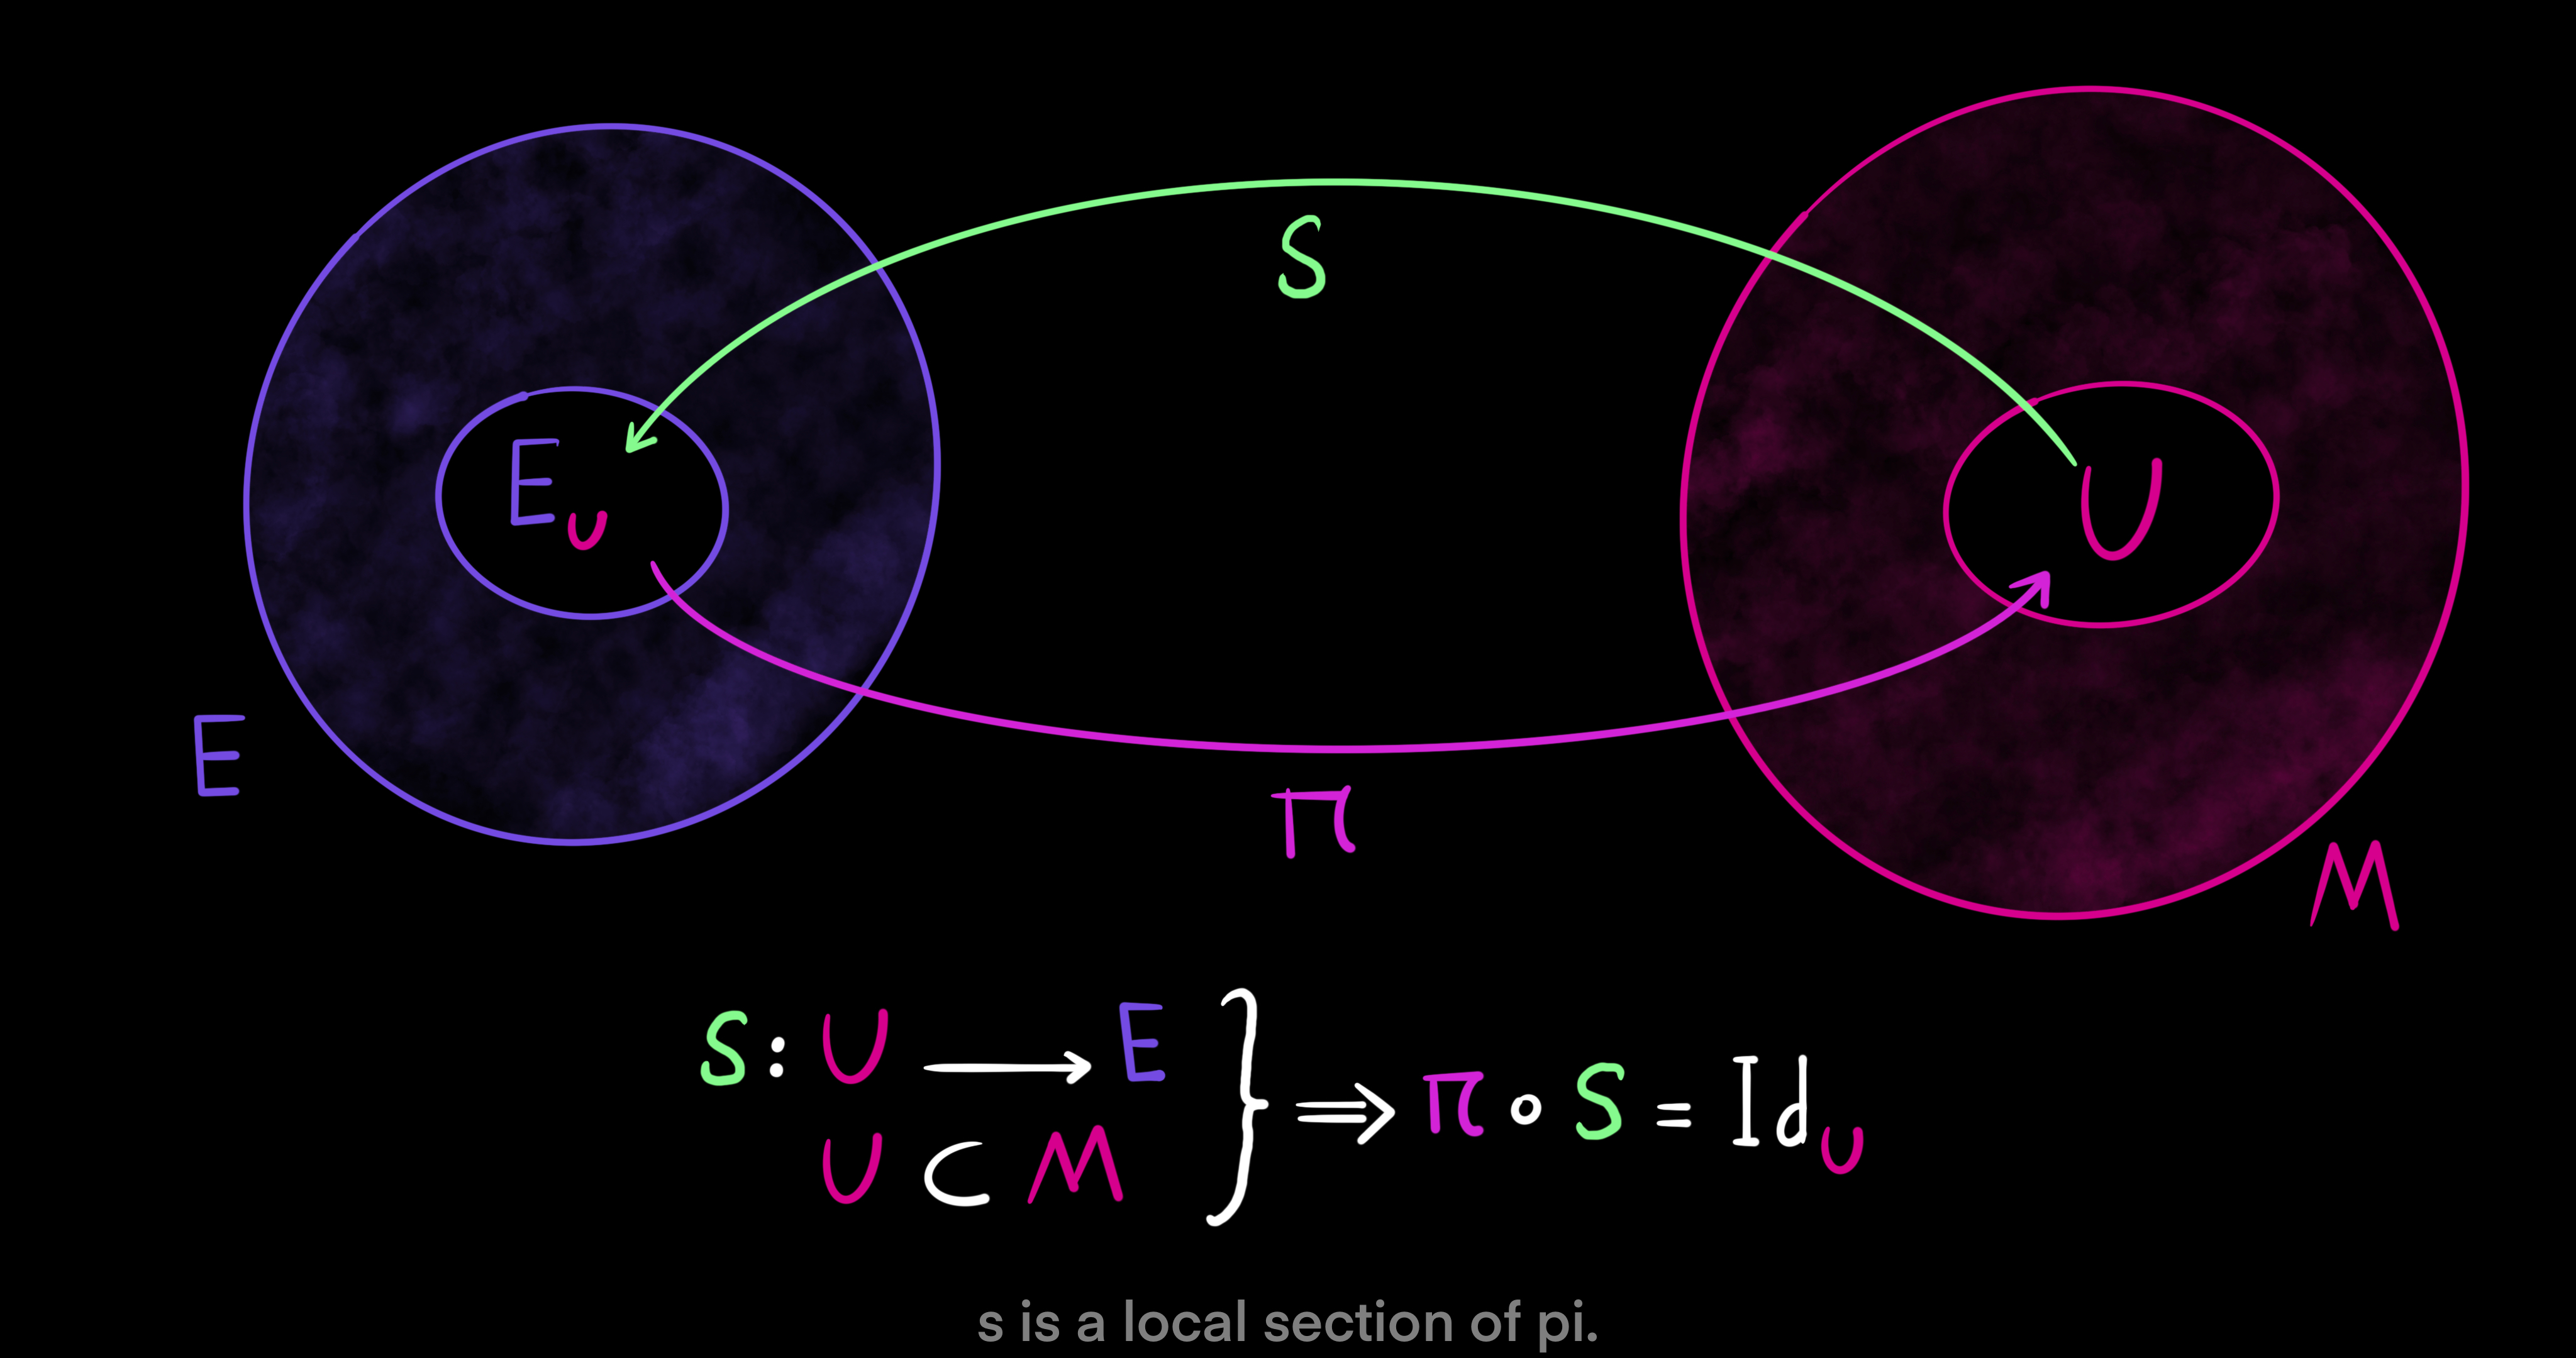 S
E_U
U
E
π
M
S: U ⟶ E
U ⊂ M
} ⟹ π ∘ S = Id_U
s is a local section of pi.